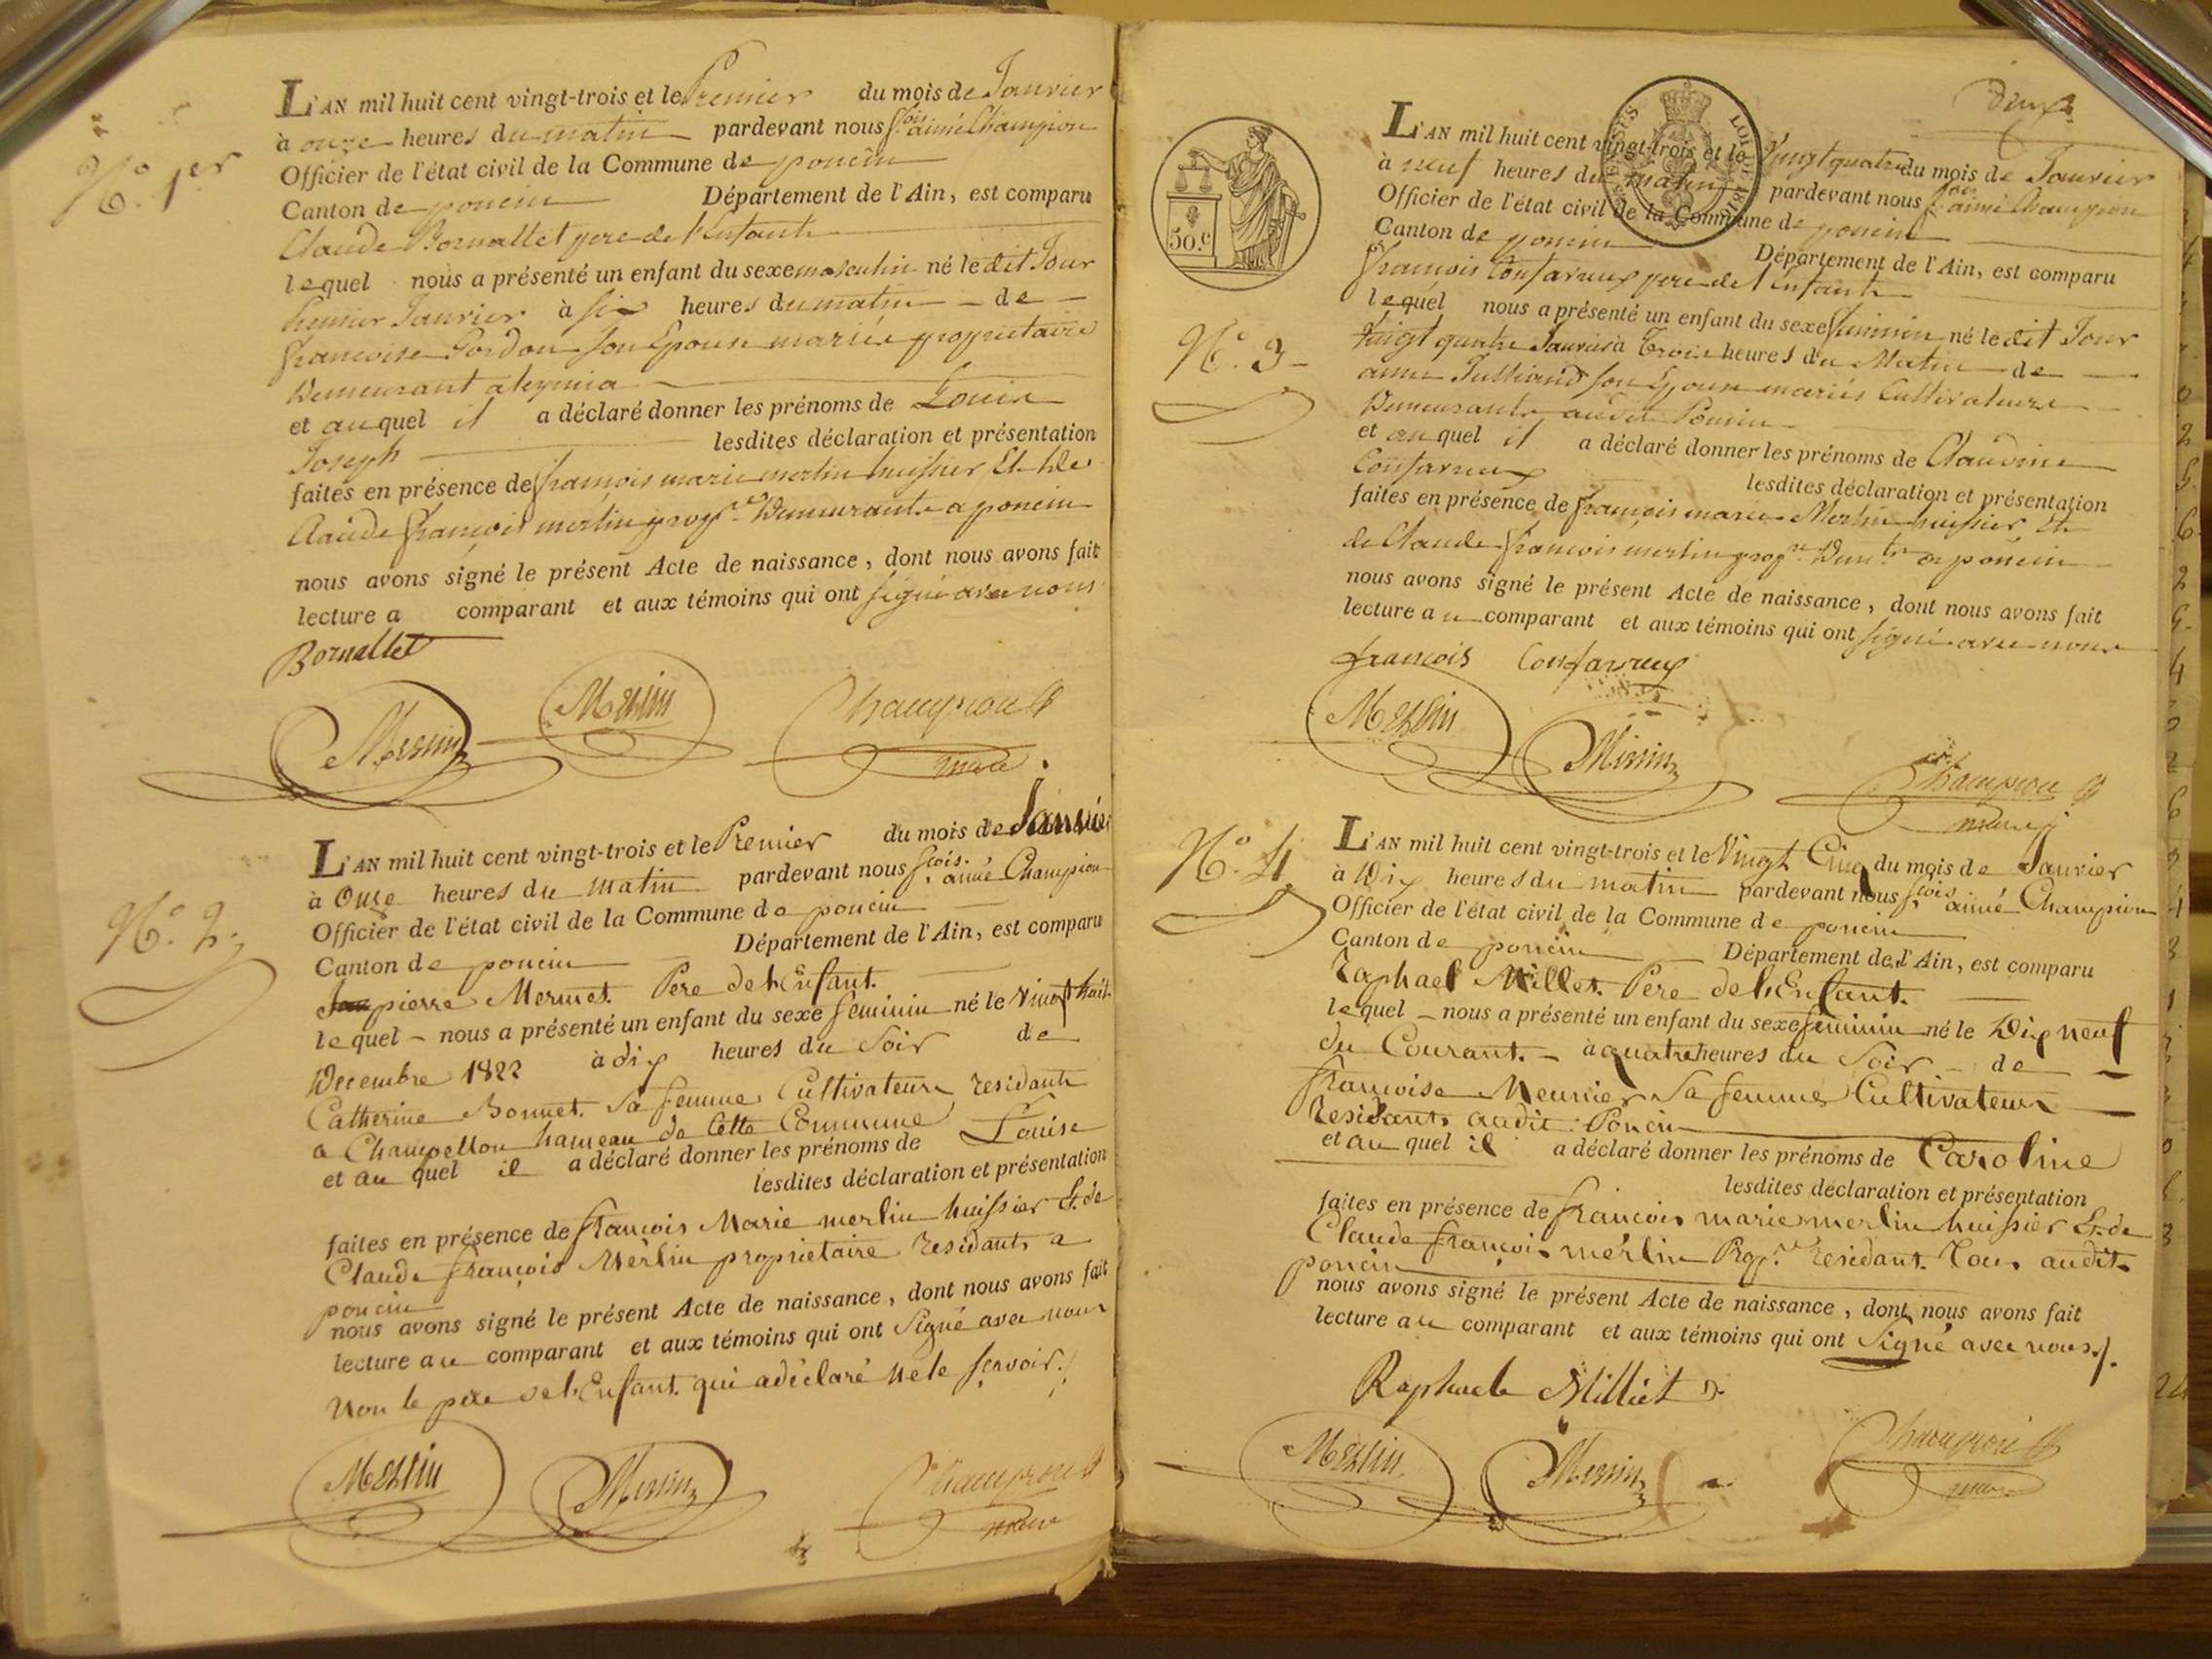 N.o 1.er
L'AN mil huit cent vingt-trois et le Premier du mois de Janvier
à onze heures du matin pardevant nous f.cois aimé Champion
Officier de l'état civil de la Commune de poncin
Canton de poncin Département de l'Ain, est comparu
Claude Bornallet pere de l'Enfant
lequel nous a présenté un enfant du sexe masculin né le dit Jour
premier Janvier à six heures du matin de
francoise son Epouse mariés proprietaire
Demeurant a leymia
et au quel il a déclaré donner les prénoms de Louis
Joseph lesdites déclaration et présentation
faites en présence de françois marie merlin huissier Et de
Claude françois merlin prop.re Demeurants a poncin
nous avons signé le présent Acte de naissance, dont nous avons fait
lecture a comparant et aux témoins qui ont signé avec nous
Bornallet
Merlin Merlin Champion
maire
N.o 2
L'AN mil huit cent vingt-trois et le Premier du mois de Janvier
à Onze heures du matin pardevant nous f.cois aimé Champion
Officier de l'état civil de la Commune de poncin
Canton de poncin Département de l'Ain, est comparu
pierre Mermet Pere de l'Enfant.
lequel nous a présenté un enfant du sexe feminin né le Vingt huit
Decembre 1822 à dix heures du Soir de
Catherine Bonnet Sa femme Cultivateurs residants
a Champellon hameau de Cette Commune
et au quel il a déclaré donner les prénoms de Louise
lesdites déclaration et présentation
faites en présence de françois Marie merlin huissier Et de
Claude françois Merlin proprietaire residants a
poncin
nous avons signé le présent Acte de naissance, dont nous avons fait
lecture au comparant et aux témoins qui ont Signé avec nous
Non le pere de l'Enfant qui a déclaré ne le scavoir
Merlin Merlin Champion
maire
deux
50.c
N.o 3
L'AN mil huit cent vingt-trois et le Vingt quatre du mois de Janvier
à neuf heures du matin pardevant nous f.cois aimé Champion
Officier de l'état civil de la Commune de poncin
Canton de poncin Département de l'Ain, est comparu
francois Confavreux pere de l'Enfant
lequel nous a présenté un enfant du sexe feminin né le dit Jour
Vingt quatre Janvier à Trois heures du Matin de
anne Julliand son Epouse mariés Cultivateurs
Demeurants audit Poncin
et au quel il a déclaré donner les prénoms de Claudine
Confavreux lesdites déclaration et présentation
faites en présence de françois marie Merlin huissier Et
de Claude francois merlin prop.re Dem.ts a poncin
nous avons signé le présent Acte de naissance, dont nous avons fait
lecture au comparant et aux témoins qui ont signé avec nous
francois Confavreux
Merlin Merlin Champion
maire
N.o 4
L'AN mil huit cent vingt-trois et le Vingt Cinq du mois de Janvier
à Dix heures du matin pardevant nous f.cois aimé Champion
Officier de l'état civil de la Commune de poncin
Canton de poncin Département de l'Ain, est comparu
Raphael Millet Pere de l'Enfant.
lequel nous a présenté un enfant du sexe feminin né le Dix neuf
du Courant à quatre heures du Soir de
françoise Meunier Sa femme Cultivateurs
residants audit Poncin
et au quel il a déclaré donner les prénoms de Caroline
lesdites déclaration et présentation
faites en présence de françois marie merlin huissier Et de
Claude françois merlin Prop.re residant tous audit
poncin
nous avons signé le présent Acte de naissance, dont nous avons fait
lecture au comparant et aux témoins qui ont Signé avec nous
Raphaele Milliet
Merlin Merlin Champion
maire